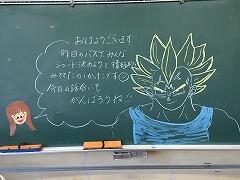 おはようございます
昨日のバスケ、みんな
シュート決めようと積極的
みててたのしかったです☺
今日の話合いも
がんばろうね!!